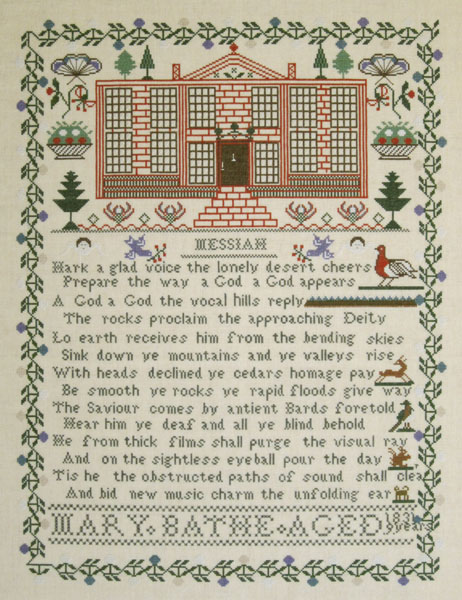 MESSIAH
Hark a glad voice the lonely desert cheers
Prepare the way a God a God appears
A God a God the vocal hills reply
The rocks proclaim the approaching Deity
Lo earth receives him from the bending skies
Sink down ye mountains and ye valleys rise
With heads declined ye cedars homage pay
Be smooth ye rocks ye rapid floods give way
The Saviour comes by antient Bards foretold
Hear him ye deaf and all ye blind behold
He from thick films shall purge the visual ray
And on the sightless eyeball pour the day
Tis he the obstructed paths of sound shall clea
And bid new music charm the unfolding ear
MARY BATHE AGED
years